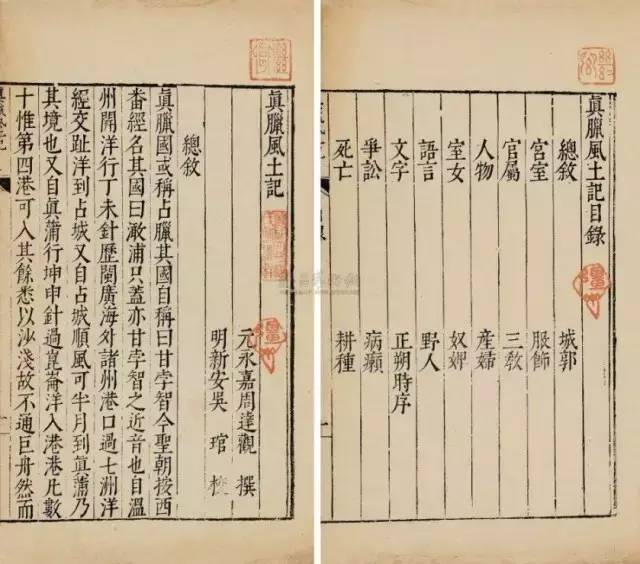 眞臘風土記目錄
總敘 城郭
宮室 服飾
官屬 三教
人物 産婦
室女 奴婢
語言 野人
文字 正朔時序
爭訟 病癩
死亡 耕種
眞臘風土記
元永嘉周達觀 撰
明新安吳 琯 校
總敘
眞臘國或稱占臘其國自稱曰甘孛智今聖朝按西
番經名其國曰澉浦只蓋亦甘孛智之近音也自溫
州開洋行丁未針歷閩廣海外諸州港口過七洲洋
經交趾洋到占城又自占城順風可半月到眞蒲乃
其境也又自眞蒲行坤申針過崑崙洋入港港凡數
十惟第四港可入其餘悉以沙淺故不通巨舟然而